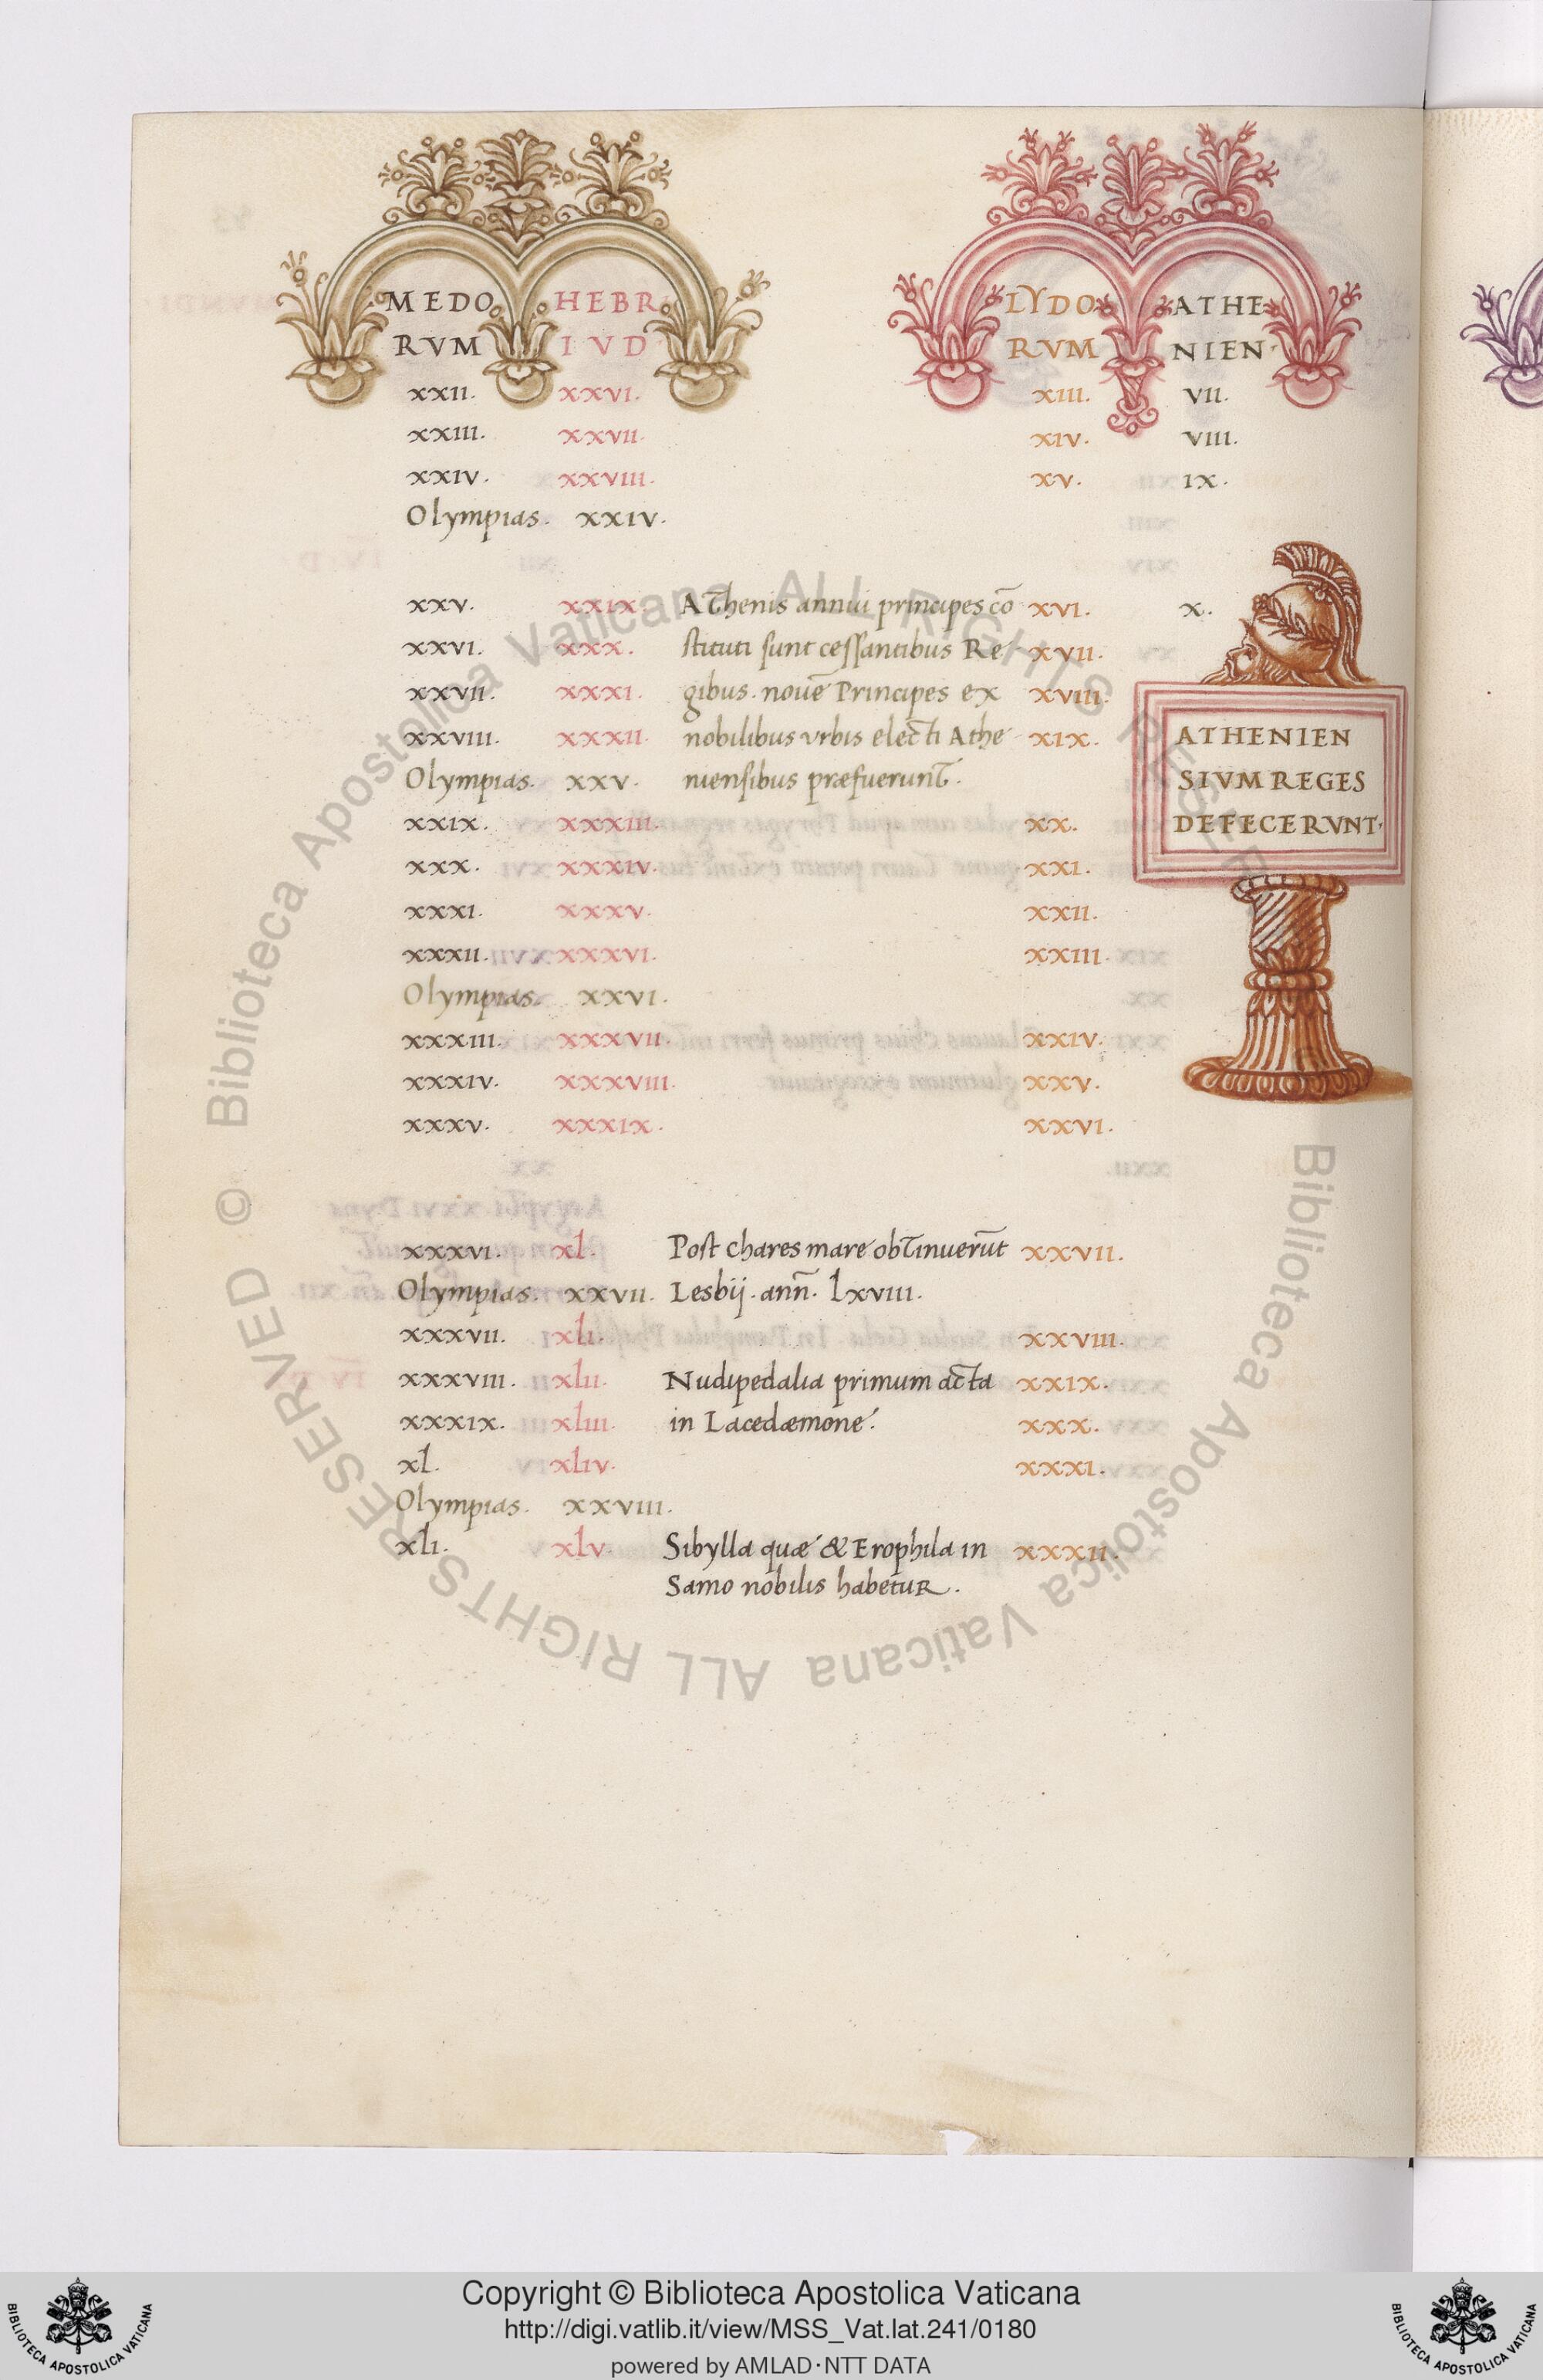 MEDO HEBR LYDO ATHE
RVM IVD RVM NIEN·
xxii. xxvi. xiii. vii.
xxiii. xxvii. xiv. viii.
xxiv. xxviii. xv. ix.
Olympias. xxiv.
xxv. xxix. Athenis annui principes cō xvi. x.
xxvi. xxx. stituti sunt cessantibus Re xvii.
xxvii. xxxi. gibus. nouē Principes ex xviii.
xxviii. xxxii. nobilibus vrbis electi Athe xix.
Olympias. xxv. niensibus præfuerunt.
ATHENIEN
SIVM REGES
DEFECERVNT·
xxix. xxxiii. xx.
xxx. xxxiv. xxi.
xxxi. xxxv. xxii.
xxxii. xxxvi. xxiii.
Olympias. xxvi.
xxxiii. xxxvii. xxiv.
xxxiv. xxxviii. xxv.
xxxv. xxxix. xxvi.
xxxvi. xl. Post chares mare obtinuerūt xxvii.
Olympias. xxvii. Lesbij. ann̄. lxviii.
xxxvii. xli. xxviii.
xxxviii. xlii. Nudipedalia primum acta xxix.
xxxix. xliii. in Lacedæmone. xxx.
xl. xliv. xxxi.
Olympias. xxviii.
xli. xlv. Sibylla quæ & Erophila in xxxii.
Samo nobilis habetur.
© Biblioteca Apostolica Vaticana ALL RIGHTS RESERVED
Biblioteca Apostolica Vaticana ALL RIGHTS RESERVED
Copyright © Biblioteca Apostolica Vaticana
http://digi.vatlib.it/view/MSS_Vat.lat.241/0180
powered by AMLAD·NTT DATA
BIBLIOTECA APOSTOLICA VATICANA
BIBLIOTECA APOSTOLICA VATICANA